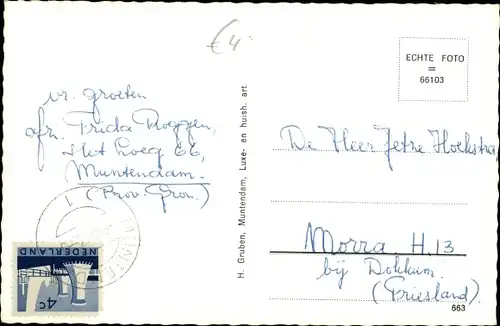 € 4
vr. groeten
afz. Frida Roggen,
Het Loeg 66,
Muntendam.
(Prov. Gron.)
NEDERLAND
4c
H. Gruben, Muntendam, Luxe- en huish. art
ECHTE FOTO
=
66103
De Heer Jetze Hoekstra
Morra H. 13
bij Dokkum.
(Friesland)
663